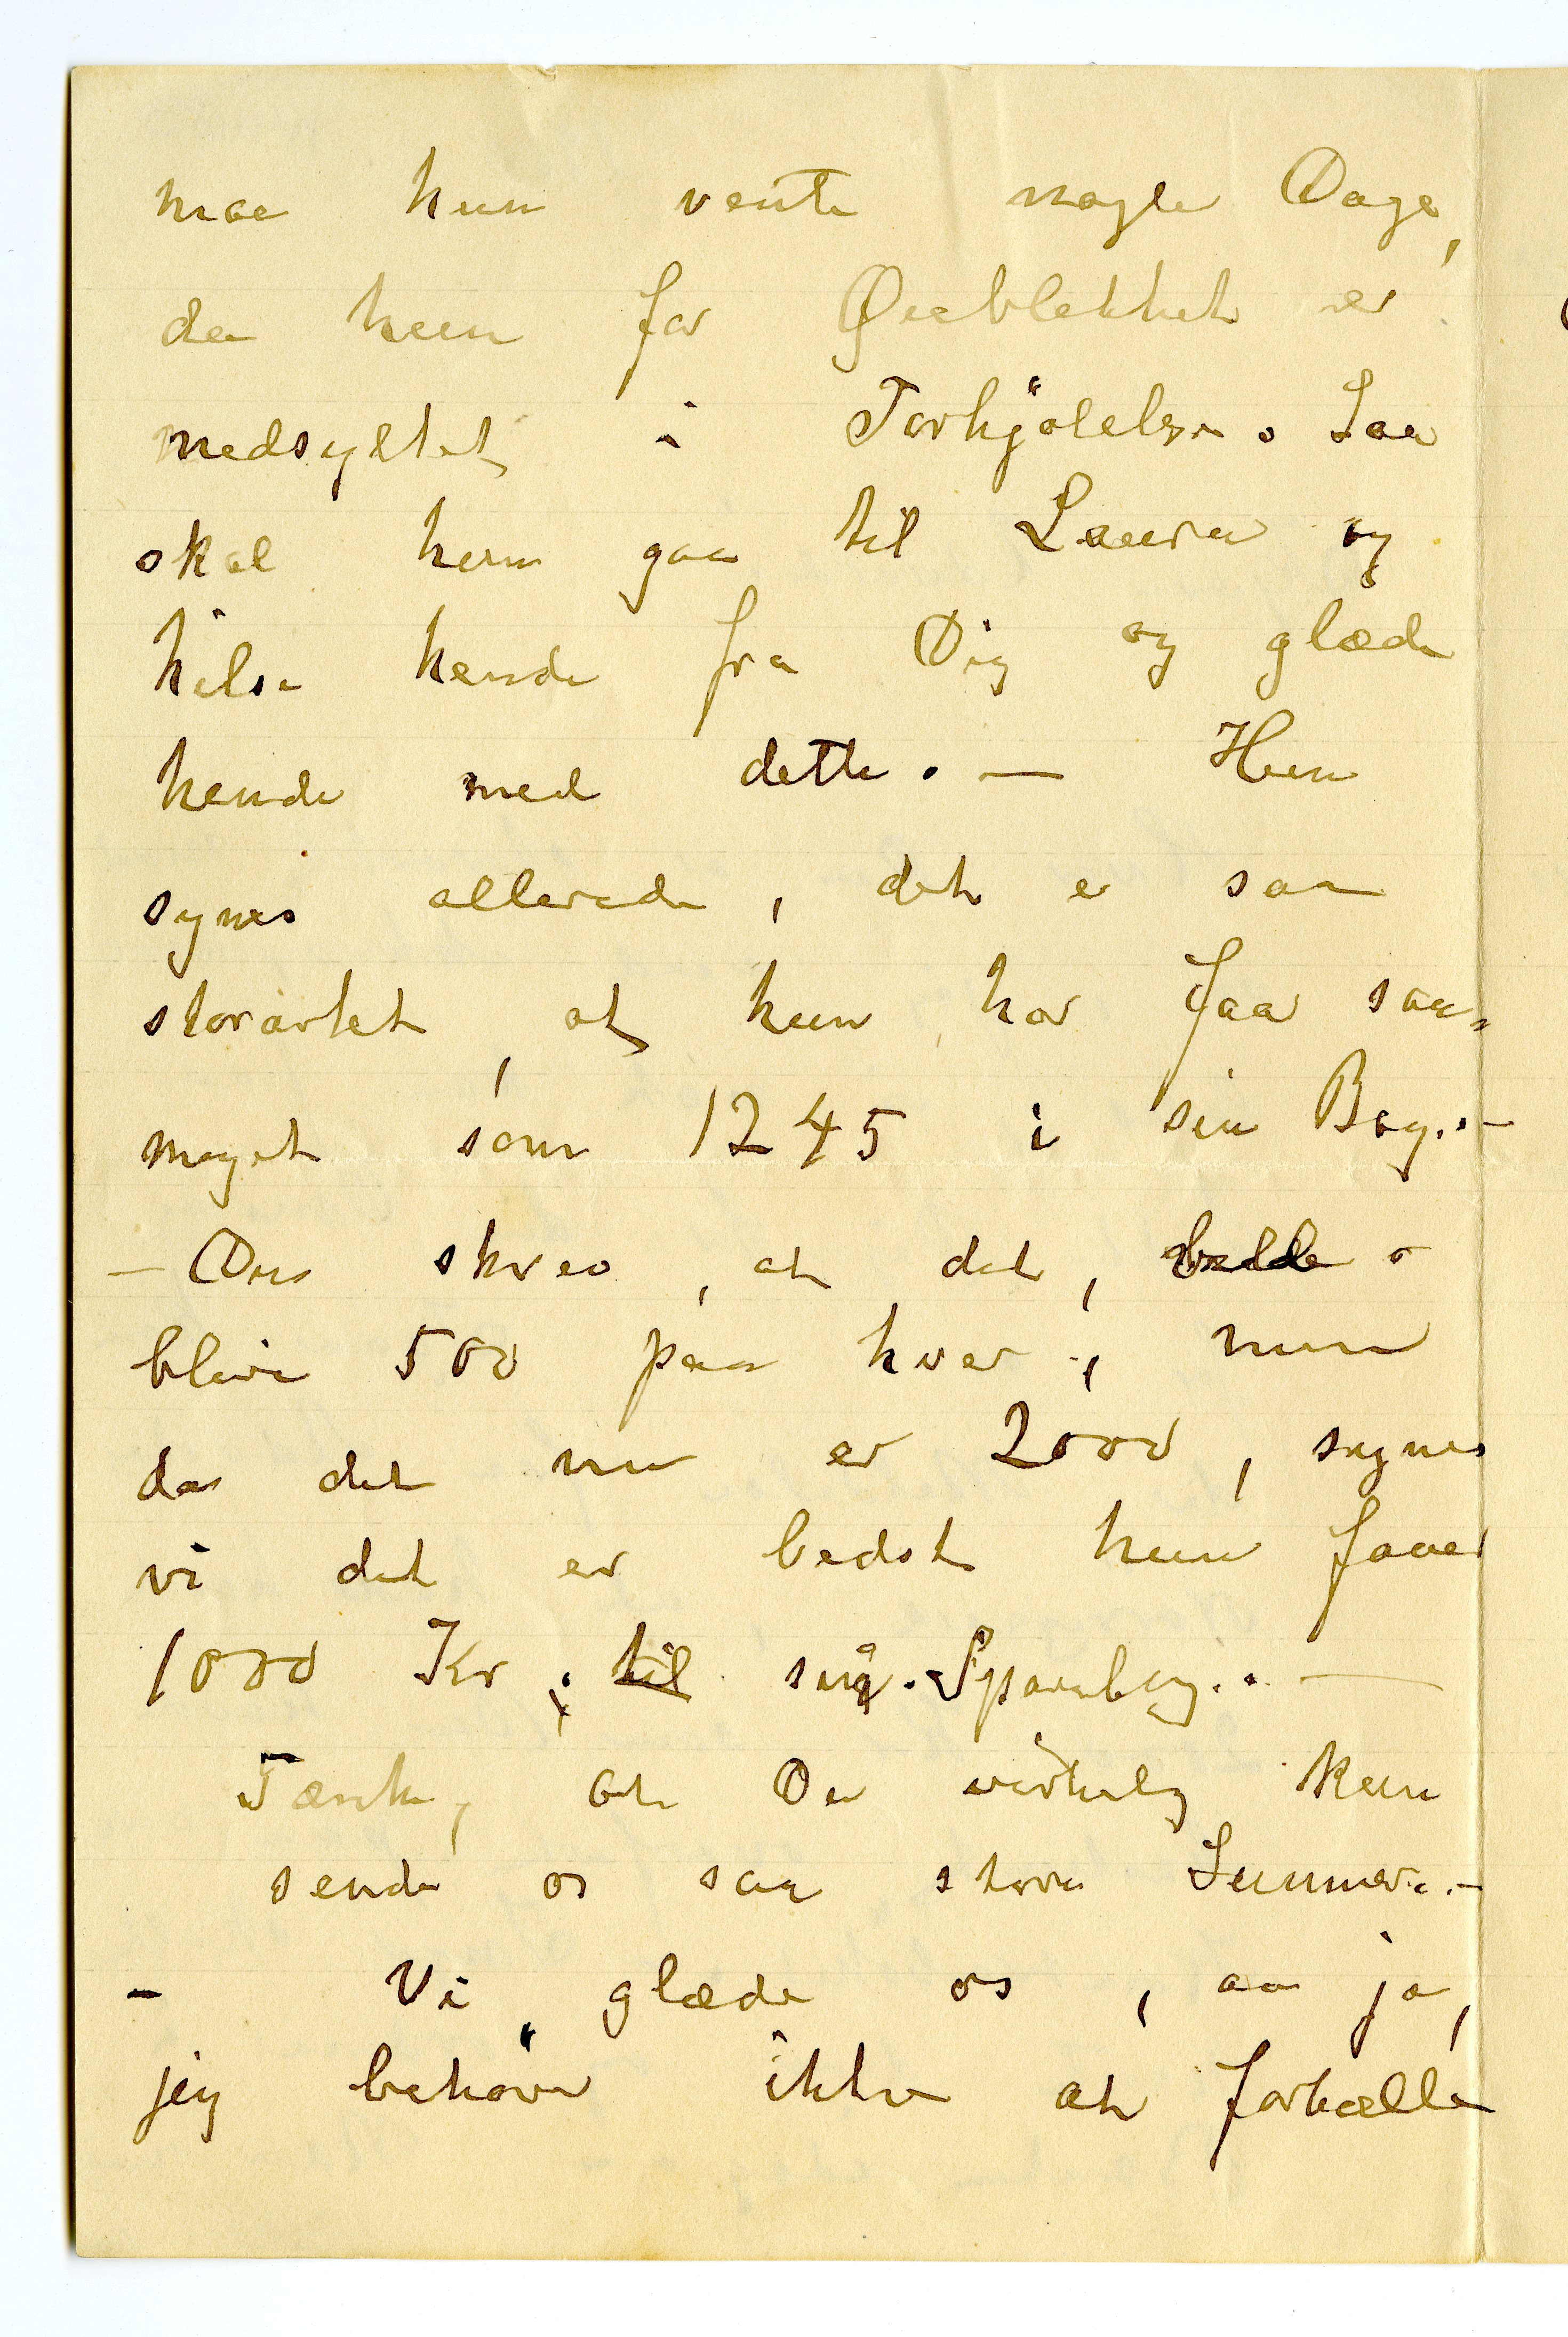 maa hun vente nogle Dage,
da hun for Øieblekket er
nedsyltet i Forkjölelse. Saa
skal hun gaa til Laura og
hilse hende fra Dig og glæde
hende med dette. — Hun
synes allerede, det er saa
storartet, at hun har faa saa-
meget som 1245 i sin Bog. —
— Du skrev, at det, skulde
blive 500 paa hver, men
da det nu er 2000, synes
vi det er bedst hun faaer
1000 Kr. til sin Sparebog. —
Tænk, at Du virkelig kun
sende os saa store Summer. —
— Vi glæde os, aa ja,
jeg behöver ikke at fortælle